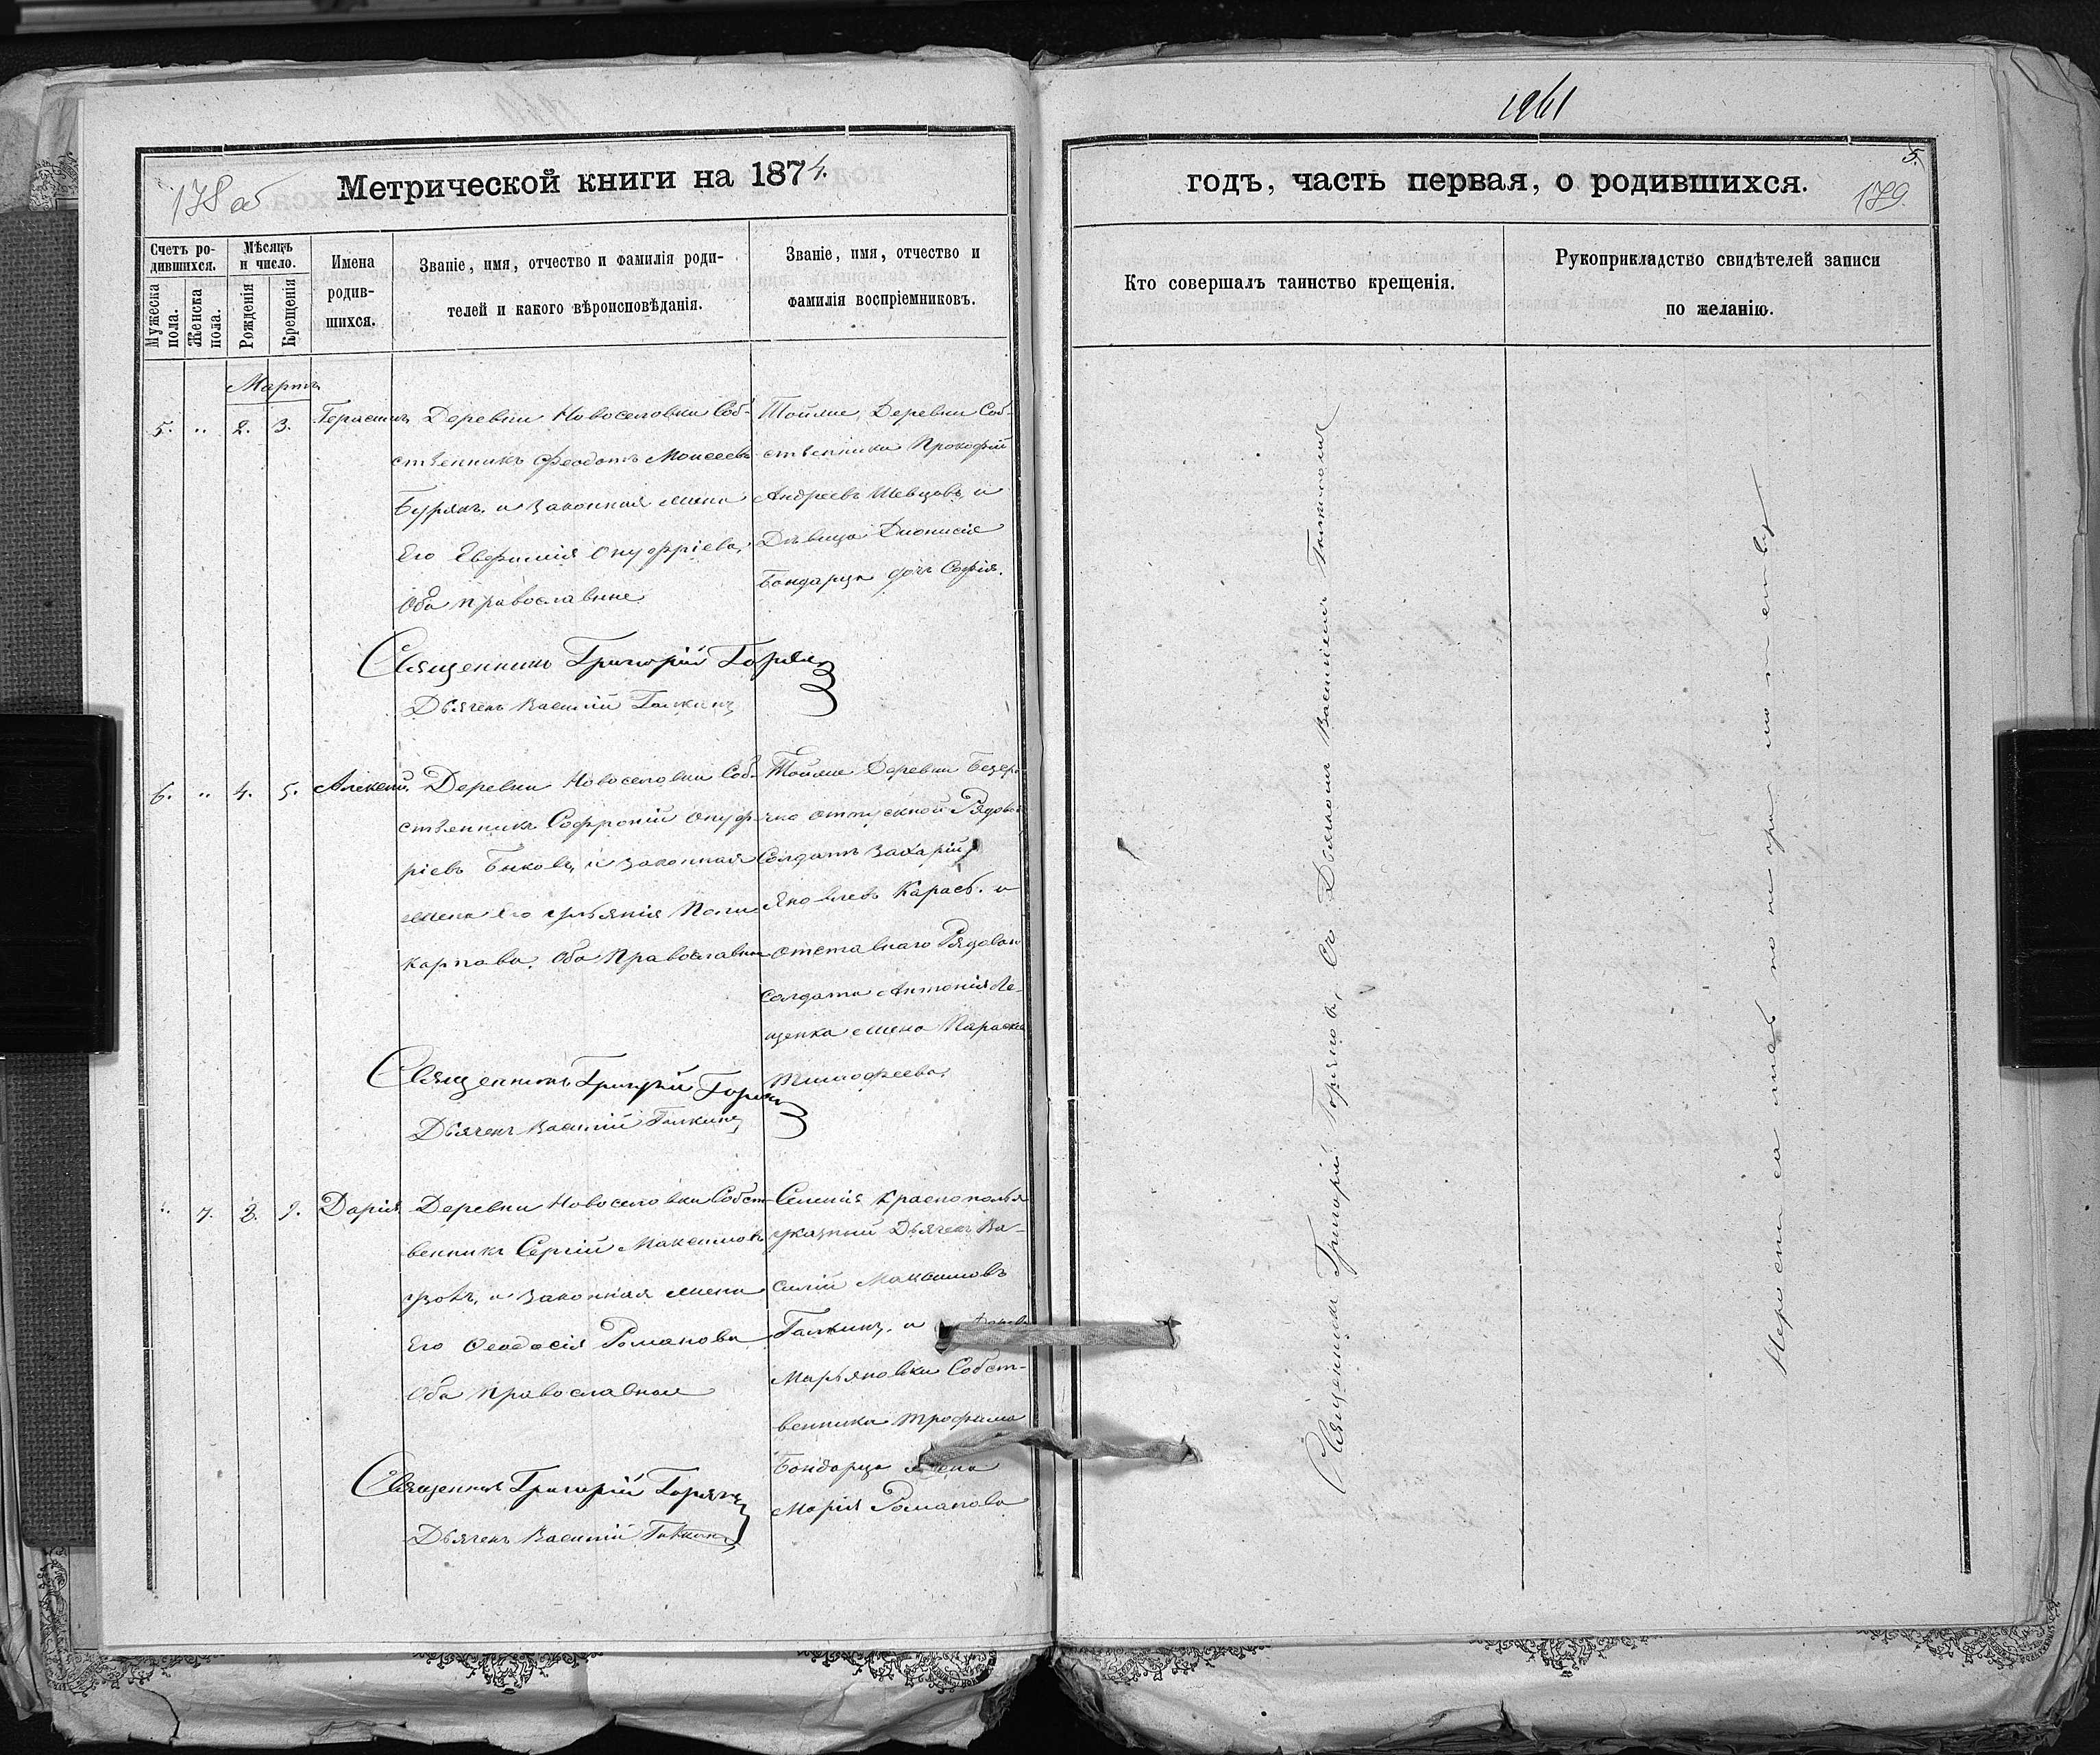 178 об
Метрической книги на 1874.
Счетъ ро-
дившихся.
Мужеска
пола.
Женска
пола.
Мѣсяцъ
и число.
Рожденія
Крещенія
Имена
родив-
шихся.
Званіе, имя, отчество и фамилія роди-
телей и какого вѣроисповѣданія.
Званіе, имя, отчество и
фамилія воспріемниковъ.
Мартъ
5. „ 2. 3. Герасимъ
Деревни Новоселовки Соб-
ственникъ Феодотъ Моисеевъ
Бурякъ, и законная жена
Его Евфимія Онуфріева,
Оба православные
Тойже Деревни Соб-
ственники Прокофій
Андреевъ Шевцовъ, и
Дѣвица Діонисія
Бондарца дочь Софія.
Священникъ Григорій Горяев
Дьячекъ Василій Галкинъ
6. „ 4. 5. Алексій.
Деревни Новоселовки Соб-
ственникъ Софроній Онуф-
ріевъ Быковъ, и законная
жена Его Уліянія Поли
карпова, Оба Православные
Тойже Деревни Безср-
чно отпускной Рядовой
Солдатъ Захарій
Яковлевъ Карась. и
отставнаго Рядоваго
солдата Антонія Ле-
щенка жена Параскева
Тимофеева,
Священникъ Григорій
Дьячекъ Василій Галкинъ
„ 7. 8. 9. Дарія
Деревни Новоселовки Собст-
венникъ Сергій Максимовъ
и законная жена
Его Феодосія Романова
Оба православные
Селенія Краснополья
указный Дьячекъ Ва-
силій Максимовъ
Галкинъ, и
Марьяновки Собст-
венника Трофима
Бондарца жена
Марія Романова
Священникъ Григорій
Дьячекъ Василій Галкинъ
1961
5.
189.
годъ, часть первая, о родившихся.
Кто совершалъ таинство крещенія.
Рукоприкладство свидѣтелей записи
по желанію.
Священникъ Григорій Съ Дьячкомъ Василіемъ Галкиномъ
по неграмотству